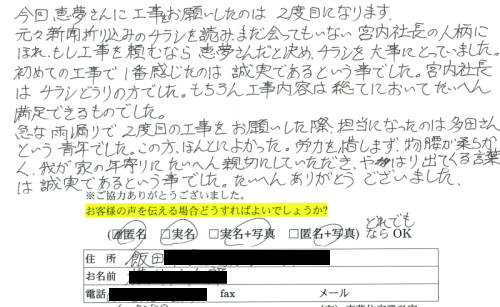 今回恵夢さんに工事をお願いしたのは2度目になります。
元々新聞折り込みのチラシを読みまだ会ってもいない宮内社長の人柄に
ほれ、もし工事を頼むなら恵夢さんだと決め、チラシを大事にとっていました。
初めての工事で1番感じたのは誠実であるという事でした。宮内社長
はチラシどうりの方でした。もちろん工事内容は総てにおいてたいへん
満足できるものでした。
急な雨漏りで2度目の工事をお願いした際、担当になったのは多田さん
という青年でした。この方、ほんとによかった。労力を惜しまず、物腰が柔らか
く、我が家の年寄りにたいへん親切にしていただき、やはり出てくる言葉
は誠実であるという事でした。たいへんありがとうございました。
※ご協力ありがとうございました。
お客様の声を伝える場合どうすればよいでしょうか?
(☑匿名 □実名 □実名+写真 □匿名+写真) どれでもなら OK
住 所 飯田
お名前
電話 fax メール